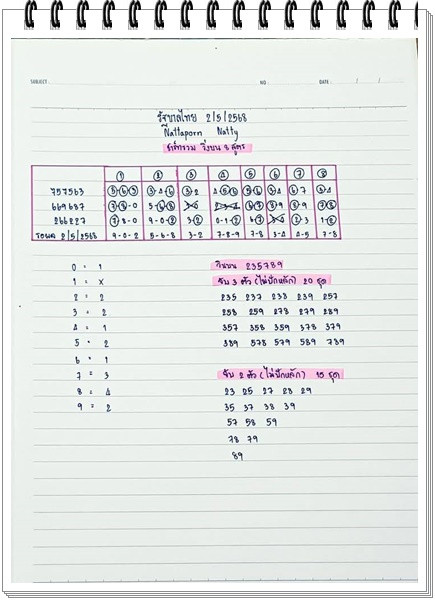 SUBJECT : NO : DATE : / /
รัฐบาลไทย 2/5/2568
Nattaporn Natty
ชาร์ทรวม วิ่งบน 8 สูตร
1 2 3 4 5 6 7 8
757563 5-6-3 3-4-6
669687 7-8-0
266227 7-8-0 9-0-2 3-2 0-1-2 2-3 1-2
9-0-2 5-6-8 3-2 7-8-9 7-8 3-4 4-5 7-8
0 = 1
1 = x
2 = 2
3 = 2
4 = 1
5 = 2
6 = 1
7 = 3
8 = 4
9 = 2
วิ่งบน 235789
จับ 3 ตัว (ไม่ปักหลัก) 20 ชุด
235 237 238 239 257
258 259 278 279 289
357 358 359 378 379
389 578 579 589 789
จับ 2 ตัว (ไม่ปักหลัก) 15 ชุด
23 25 27 28 29
35 37 38 39
57 58 59
78 79
89